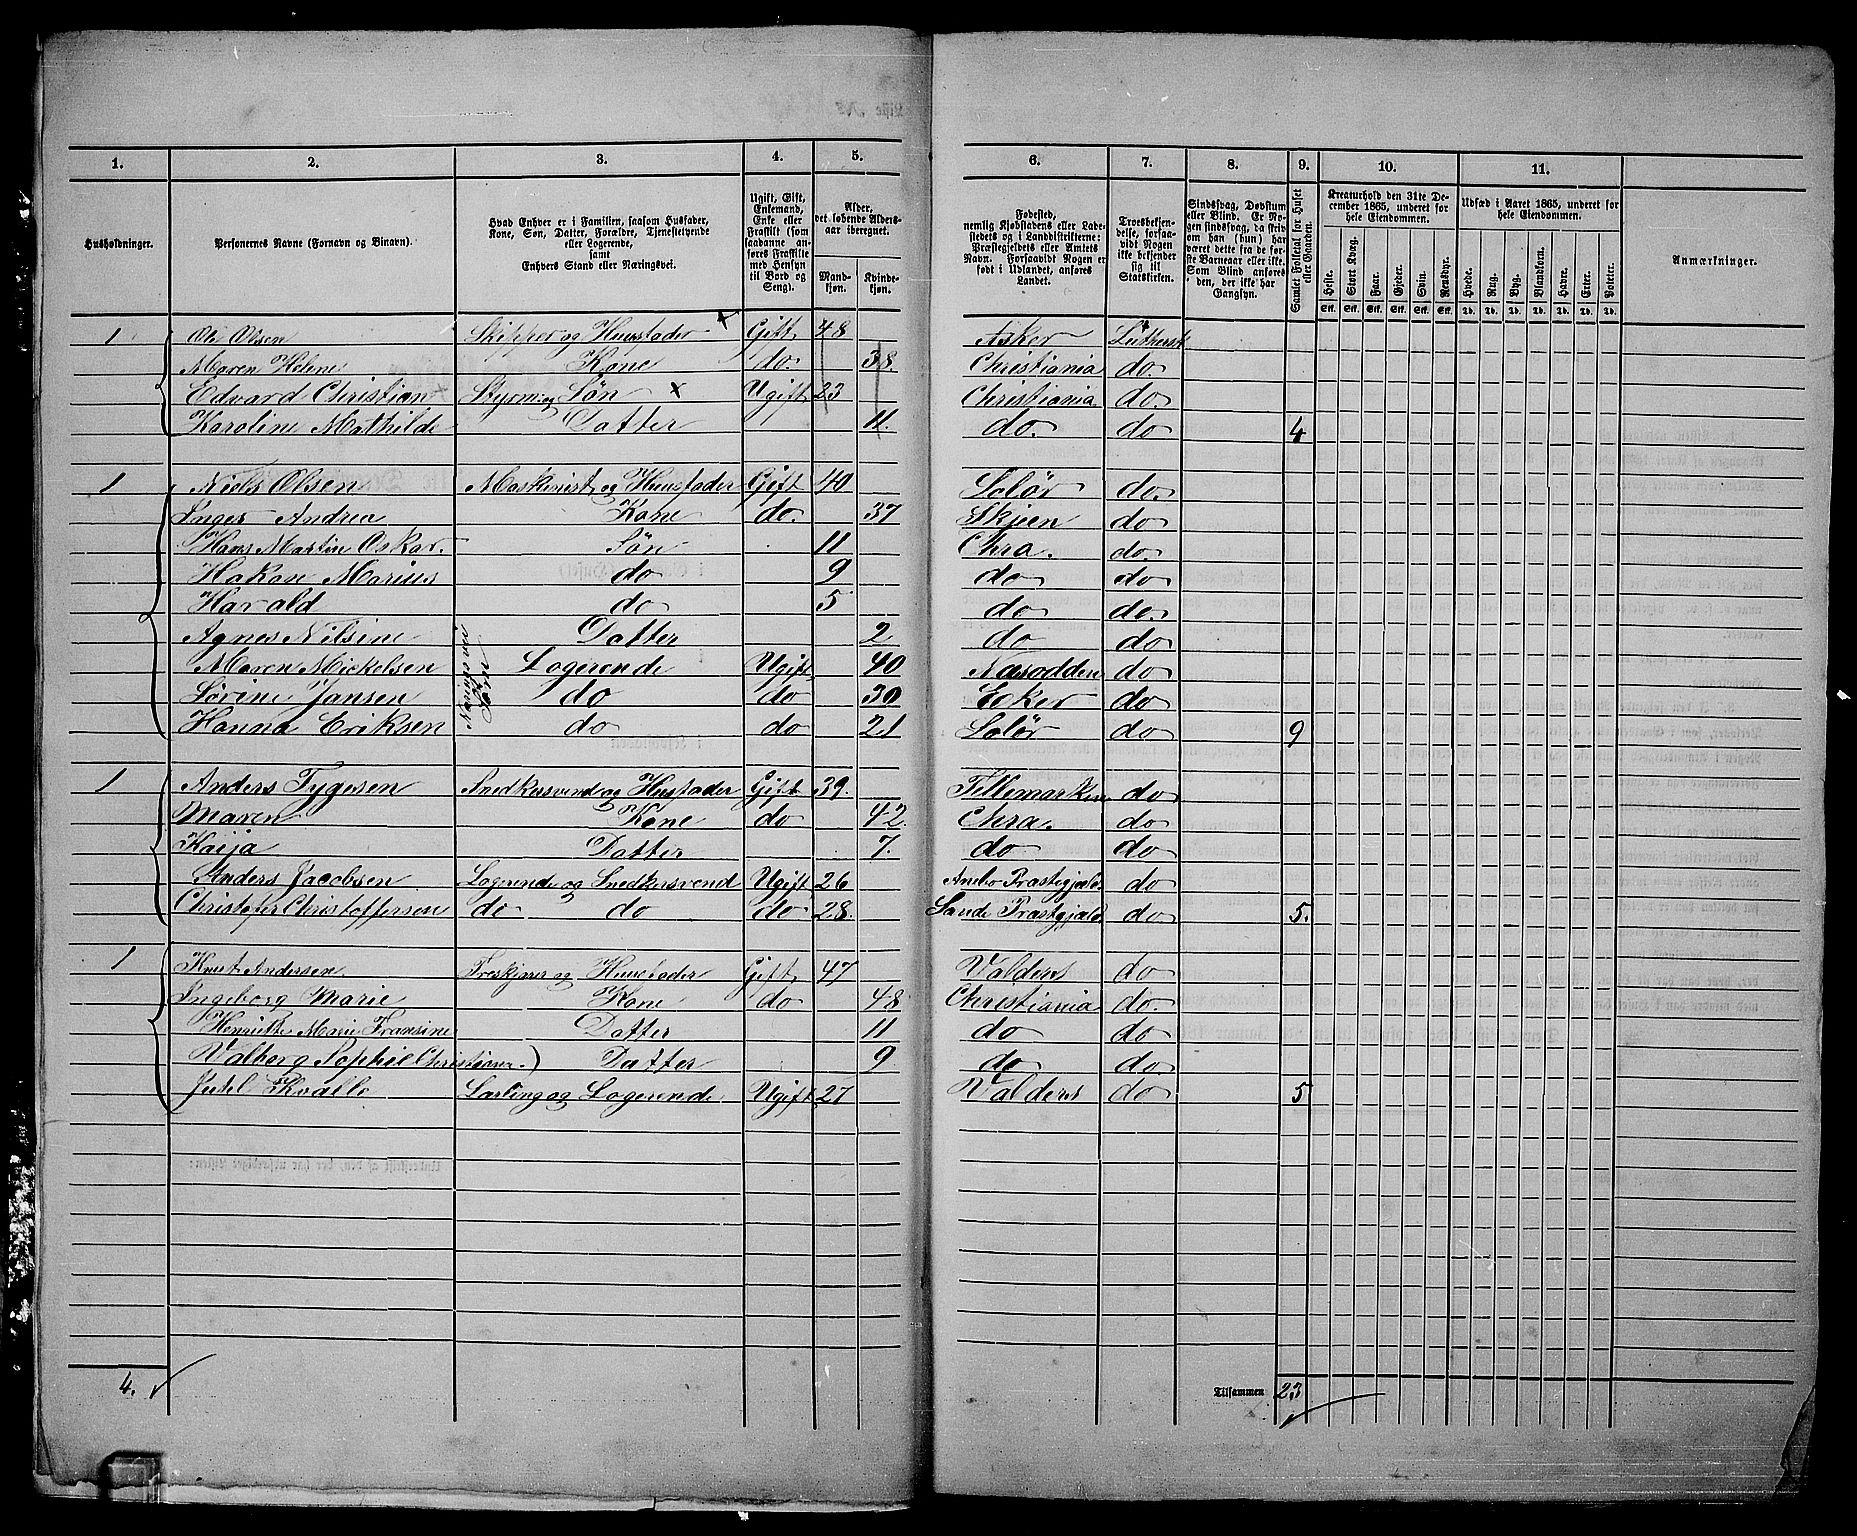 1. 2. 3. 4. 5. 6. 7. 8. 9. 10. 11.
Husholdninger.
Personernes Navne (Fornavn og Binavn).
Hvad Enhver er i Familien, saasom Husfader,
Kone, Søn, Datter, Forældre, Tjenestetyende
eller Logerende,
samt
Enhvers Stand eller Næringsvei.
Ugift, Gift,
Enkemand,
Enke eller
Fraskilt (som
saadanne an-
føres Fraskilte
med Hensyn
til Bord og
Seng).
Alder,
det løbende Alders-
aar iberegnet.
Mand-
kjøn.
Kvinde-
kjøn.
Fødested,
nemlig Kjøbstadens eller Lade-
stedets og i Landdistrikterne:
Præstegjeldets eller Amtets
Navn. Forsaavidt Nogen er
født i Udlandet, anføres
Landet.
Troesbekjen-
delse, forsaa-
vidt Nogen
ikke bekjender
sig til
Statskirken.
Sindssvag, Døvstum
eller Blind. Er No-
gen sindssvag, da skriv
om han (hun) har
været dette fra de før-
ste Barneaar eller ikke.
Som Blind anføres
den, der ikke har
Gangsyn.
Samlet Folketal for Huset
eller Gaarden.
Kreaturhold den 31te De-
cember 1865, underet for
hele Eiendommen.
Heste. Stort Kvæg. Faar. Gjeder. Svin. Rensdyr.
Stk. Stk. Stk. Stk. Stk. Stk.
Udsæd i Aaret 1865, underet for
hele Eiendommen.
Hvede. Rug. Byg. Blandkorn. Havre. Erter. Poteter.
Td. Td. Td. Td. Td. Td. Td.
Anmærkninger.
1 Ole Olsen Skipper og Huusfader x Gift 48 Asker Luthersk
Maren Helene Kone do. 38. Christiania do.
Edvard Christian Styrm: og Søn x Ugift 23 Christiania do.
Karoline Mathilde Datter 11. do. do 4
1 Niels Olsen Maskinist og Huusfader Gift 40 Solør do.
Inger Andrea Kone do. 37 Skjeen do
Hans Martin Oskar. Søn 11 Chra. do.
Hakon Marius do 9 do do
Harald do 5 do do.
Agnes Nilsine Datter 2 do do
Næringsvei
Søm
Maren Mickelsen Logerende Ugift 40 Næsodden do
Sørine Jansen do do 30 Eker do
Hanna Eriksen do do 21 Solør do 9
1 Anders Tygesen Snedkersvend og Husfader Gift 39. Tellemarken do
Maren Kone do 42. Chra. do
Kaija Datter 7. do do
Anders Jacobsen Logerende og Snedkersvend Ugift 26 Anebo Præstegjæld do
Christofer Christoffersen do do do 28. Sande Præstgjæld do 5.
1 Knut Andersen Træskjærer og Huusfader Gift 47 Valders do
Ingeborg Marie Kone do 48 Christiania do.
Henriette Marie Fransine Datter 11 do do
Valborg Sophie Christiane.) Datter 9 do do.
Kvalle Lærling og Logerende Ugift 27 Valders do 5
4.
Tilsammen 23